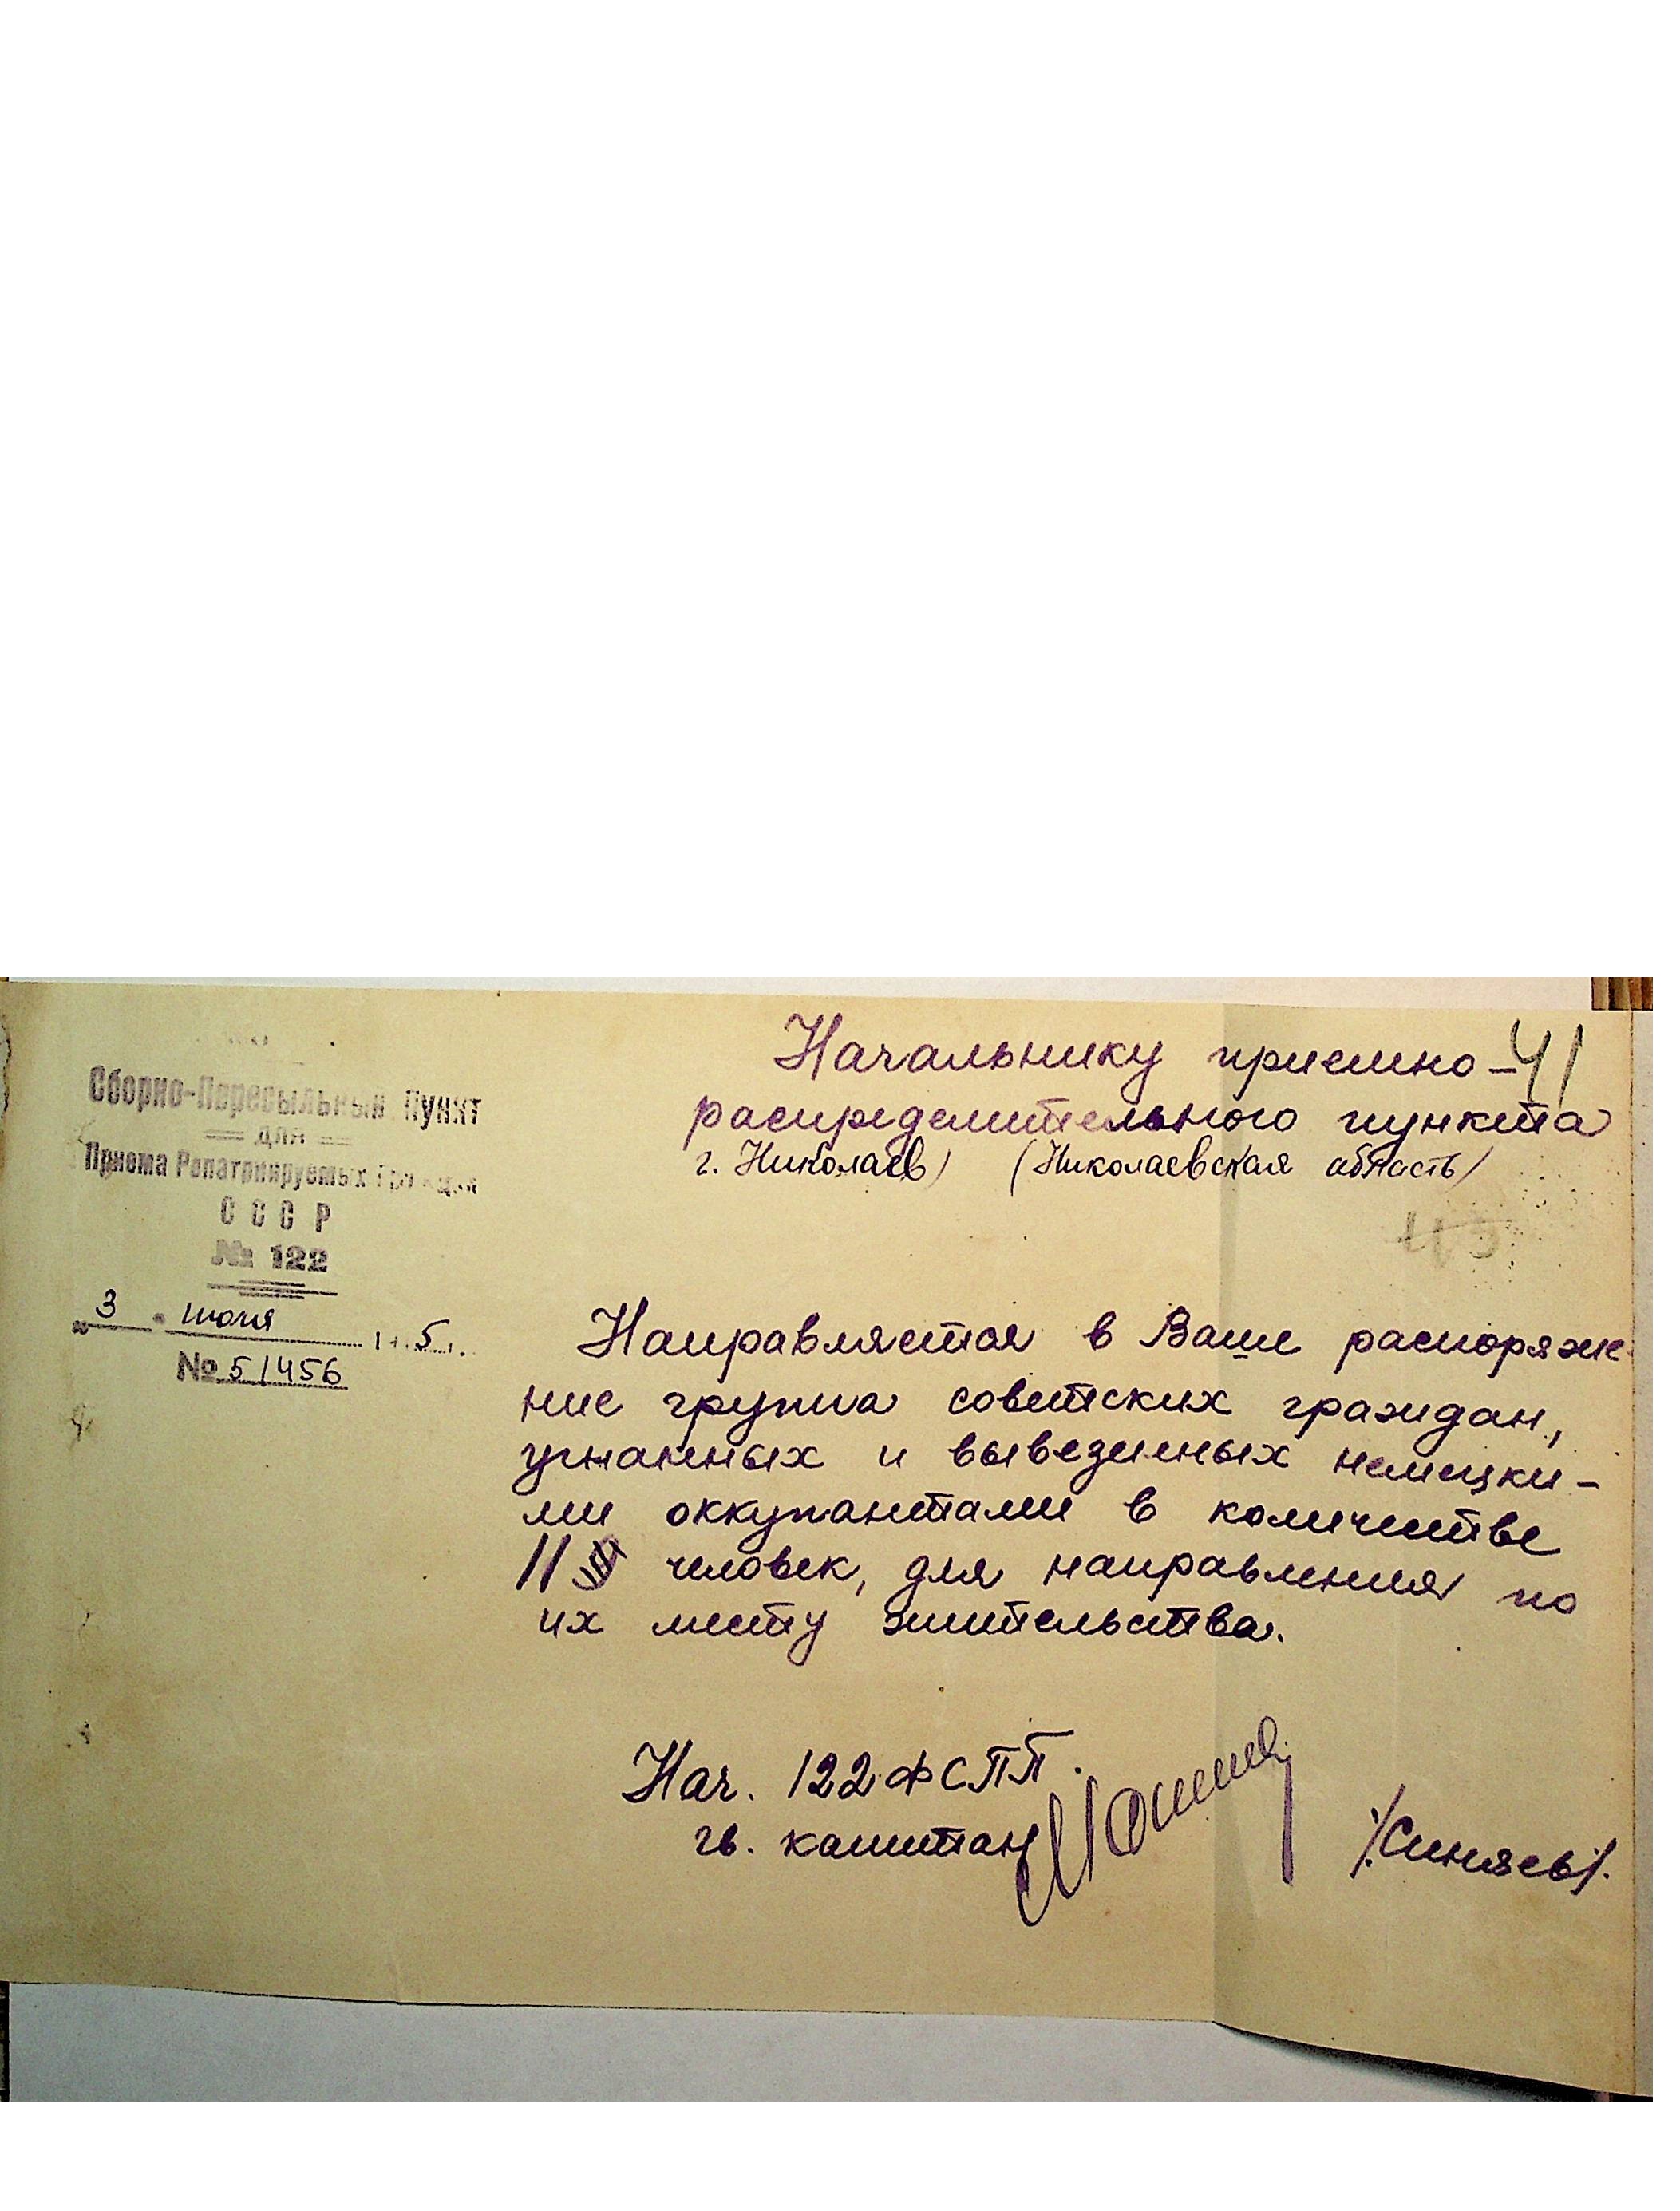 Сборно-Пересыльный Пункт
для
Приема Репатриируемых Граждан
СССР
№ 122
"3" июля 5 г.
№ 51456
41
Начальнику приемно-
распределительного пункта
г. Николаев (Николаевская область)
Направляется в Ваше распоряже-
ние группа советских граждан,
угнанных и вывезенных немецки-
ми оккупантами в количестве
11 человек, для направления по
их месту жительства.
Нач. 122 ФСПП.
гв. капитан
/Синяев/.